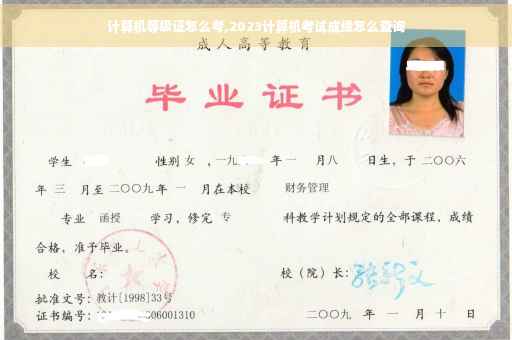 计算机等级证怎么考,2023计算机考试成绩怎么查询
成人高等教育
毕业证书
学生 性别 女 ,一九 年 一 月八 日生，于 二〇〇六
年 三 月至 二〇〇九 年 一 月在本校 财务管理
专业 函授 学习，修完 专 科教学计划规定的全部课程，成绩
合格，准予毕业。
校 名： 校（院）长：
批准文号：教计[1998]33号
证书编号： 06001310 二〇〇九 年 一 月 十 日